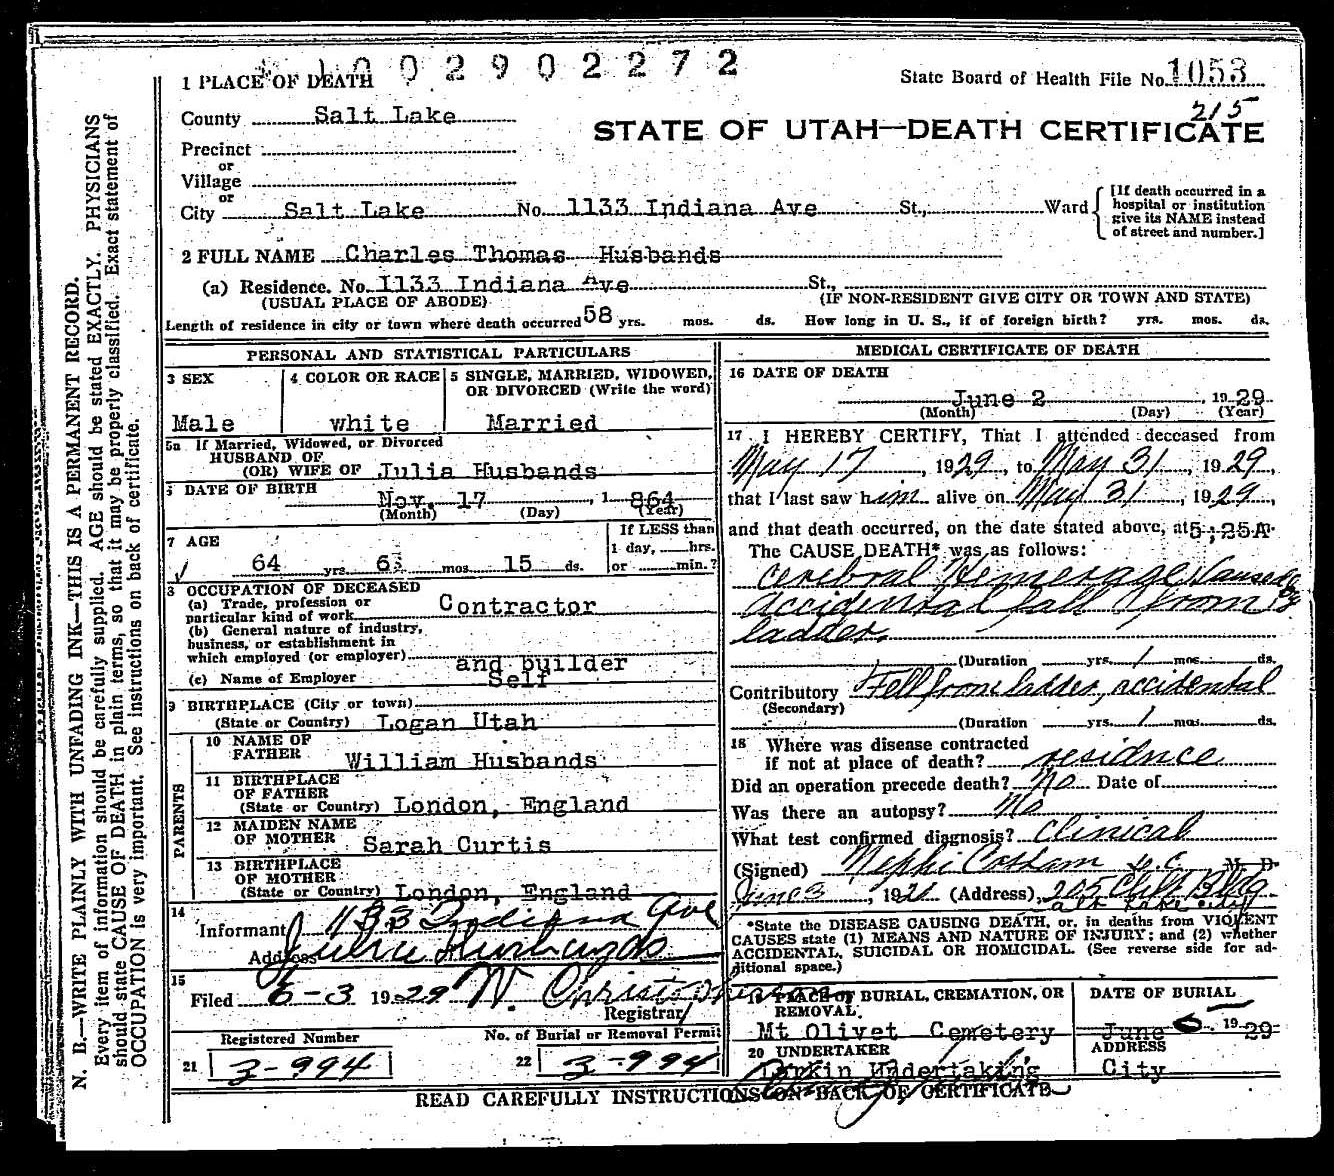 1 PLACE OF DEATH
1002902272
State Board of Health File No. 1053
215
STATE OF UTAH—DEATH CERTIFICATE
County Salt Lake
Precinct
or
Village
or
City Salt Lake No. 1133 Indiana Ave St., Ward
[If death occurred in a
hospital or institution
give its NAME instead
of street and number.]
2 FULL NAME Charles Thomas Husbands
(a) Residence. No. 1133 Indiana Ave St.,
(USUAL PLACE OF ABODE) (IF NON-RESIDENT GIVE CITY OR TOWN AND STATE)
Length of residence in city or town where death occurred 58 yrs. mos. ds. How long in U. S., if of foreign birth? yrs. mos. ds.
PERSONAL AND STATISTICAL PARTICULARS
3 SEX
Male
4 COLOR OR RACE
white
5 SINGLE, MARRIED, WIDOWED,
OR DIVORCED (Write the word)
Married
5a If Married, Widowed, or Divorced
HUSBAND OF
(OR) WIFE OF Julia Husbands
6 DATE OF BIRTH
Nov. 17, 1 864
(Month) (Day) (Year)
7 AGE
64 yrs. 6 mos. 15 ds.
If LESS than
1 day, hrs.
or min.?
8 OCCUPATION OF DECEASED
(a) Trade, profession or
particular kind of work Contractor
(b) General nature of industry,
business, or establishment in
which employed (or employer) and builder
(c) Name of Employer Self
9 BIRTHPLACE (City or town)
(State or Country) Logan Utah
PARENTS
10 NAME OF
FATHER William Husbands
11 BIRTHPLACE
OF FATHER
(State or Country) London, England
12 MAIDEN NAME
OF MOTHER Sarah Curtis
13 BIRTHPLACE
OF MOTHER
(State or Country) London, England
14
1133 Indiana Ave
Informant
Address Julia Husbands
15
Filed 6-3 1929 W. Christopherson
Registrar
Registered Number
21 3-994
No. of Burial or Removal Permit
22 3-994
MEDICAL CERTIFICATE OF DEATH
16 DATE OF DEATH
June 2, 1929
(Month) (Day) (Year)
17 I HEREBY CERTIFY, That I attended deceased from
May 17, 1929, to May 31, 1929,
that I last saw him alive on May 31, 1929,
and that death occurred, on the date stated above, at 5;25A m.
The CAUSE DEATH* was as follows:
Cerebral Hemerage Caused by
accidental fall from
ladder.
(Duration yrs. 1 mos. ds.
Contributory Fell from ladder, accidental
(Secondary)
(Duration yrs. 1 mos. ds.
18 Where was disease contracted
if not at place of death? residence
Did an operation precede death? No Date of
Was there an autopsy? No
What test confirmed diagnosis? Clinical
(Signed) Nephi Cottam D.C. M. D.
June 3, 192 (Address) 205 Clift Bldg
Salt Lake City
*State the DISEASE CAUSING DEATH, or, in deaths from VIOLENT
CAUSES state (1) MEANS AND NATURE OF INJURY; and (2) whether
ACCIDENTAL, SUICIDAL OR HOMICIDAL. (See reverse side for ad-
ditional space.)
19 PLACE OF BURIAL, CREMATION, OR
REMOVAL
Mt Olivet Cemetery
DATE OF BURIAL
June 5, 1929
20 UNDERTAKER
Larkin Undertaking
ADDRESS
City
READ CAREFULLY INSTRUCTIONS ON BACK OF CERTIFICATE
N. B.—WRITE PLAINLY WITH UNFADING INK—THIS IS A PERMANENT RECORD.
Every item of information should be carefully supplied. AGE should be stated EXACTLY. PHYSICIANS
should state CAUSE OF DEATH in plain terms, so that it may be properly classified. Exact statement of
OCCUPATION is very important. See instructions on back of certificate.